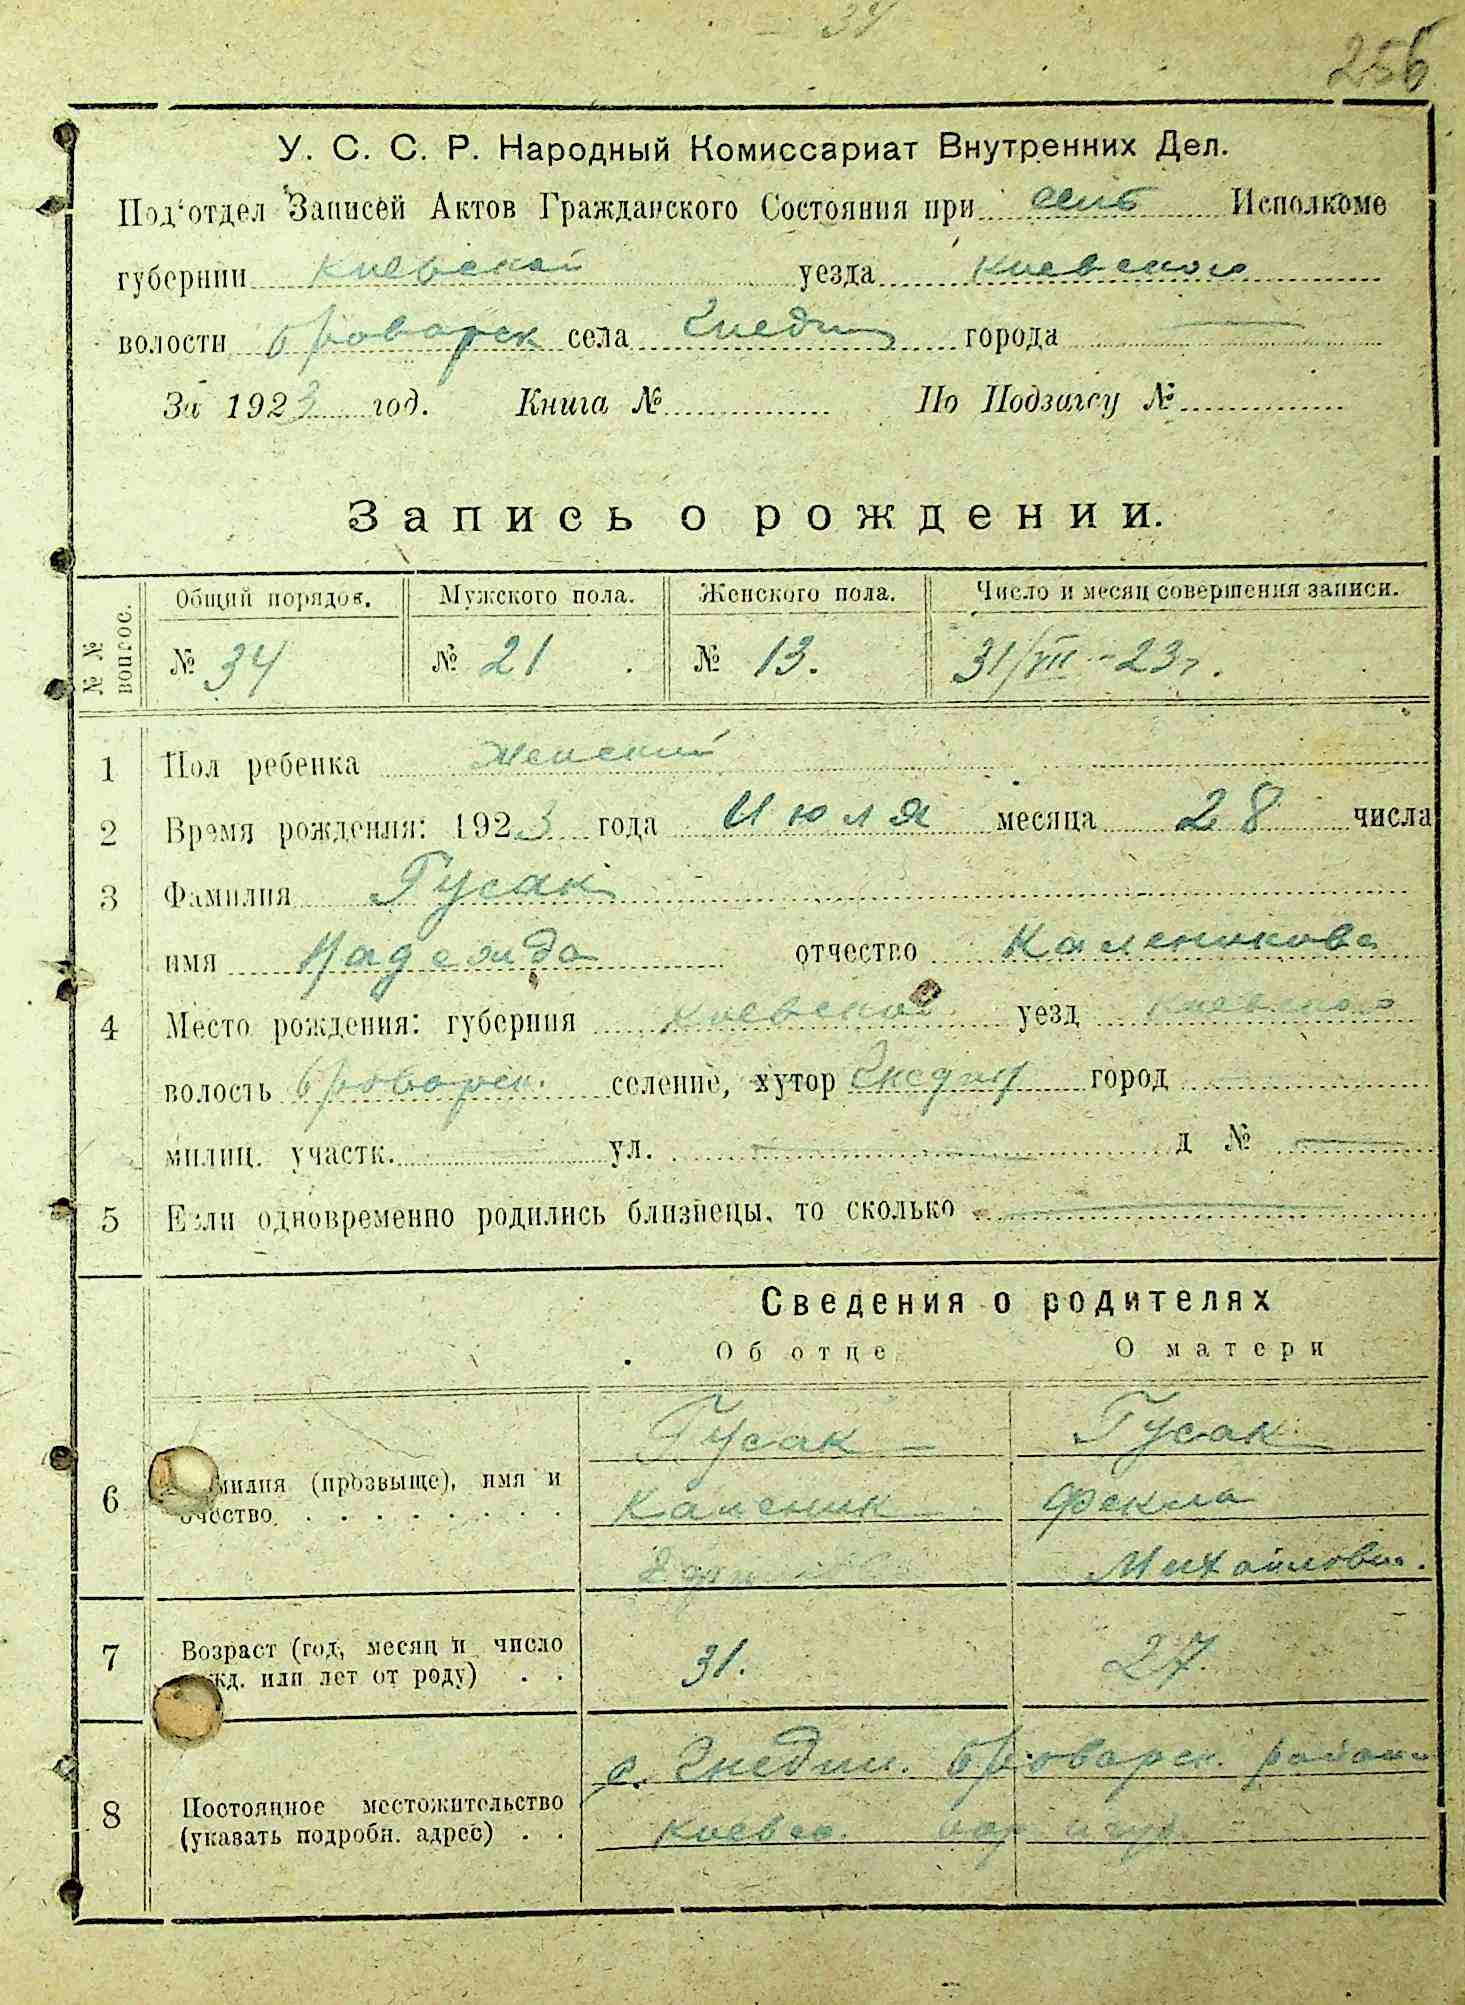 34
256
У. С. С. Р. Народный Комиссариат Внутренних Дел.
Под'отдел Записей Актов Гражданского Состояния при Исполкоме
губернии Киевской уезда Киевского
волости Броварск села Гнедин города —
За 1923 год. Книга № По Подзагсу №
Запись о рождении.
№№ вопрос. Общий порядов. Мужского пола. Женского пола. Число и месяц совершения записи.
№ 34 № 21 № 13. 31/VII - 23 г.
1 Пол ребенка Женский
2 Время рождения: 1923 года Июля месяца 28 числа
3 Фамилия Гусак
имя Надежда отчество Калениковна
4 Место рождения: губерния Киевской уезд Киевского
волость Броварск. селение, хутор Гнедин город
милиц. участк. ул. — д № —
5 Если одновременно родились близнецы, то сколько —
Сведения о родителях
Об отце О матери
Гусак Гусак
6 Фамилия (прозвыще), имя и
отчество Каленик Фекла
Михайловн.
7 Возраст (год, месяц и число
рожд. или лет от роду) 31. 27.
с. Гнедин. Броварск. район
8 Постоянное местожительство
(указать подробн. адрес) Киевск. окр. и губ.